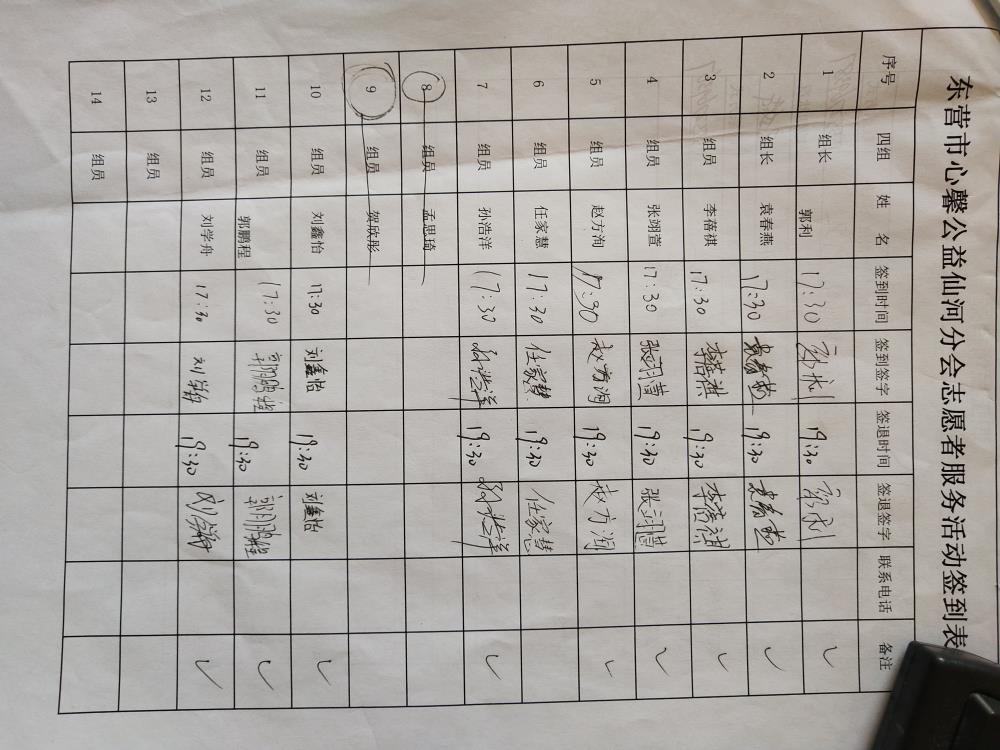 东营市心馨公益仙河分会志愿者服务活动签到表
序号 四组 姓 名 签到时间 签到签字 签退时间 签退签字 联系电话 备注
1 组长 郭利 17:30 郭利 19:30 郭利 ✓
2 组长 袁春燕 17:30 袁春燕 19:30 袁春燕 ✓
3 组员 李蓓祺 17:30 李蓓祺 19:30 李蓓祺 ✓
4 组员 张翊萱 17:30 张翊萱 19:30 张翊萱 ✓
5 组员 赵方洵 17:30 赵方洵 19:30 赵方洵 ✓
6 组员 任家慧 17:30 任家慧 19:30 任家慧
7 组员 孙浩洋 17:30 孙浩洋 19:30 孙浩洋 ✓
8 组员 孟思琦
9 组员 贺欣彤
10 组员 刘鑫怡 17:30 刘鑫怡 19:30 刘鑫怡 ✓
11 组员 郭鹏程 17:30 郭鹏程 19:30 郭鹏程 ✓
12 组员 刘学舟 17:30 刘学舟 19:30 刘学舟 ✓
13 组员
14 组员